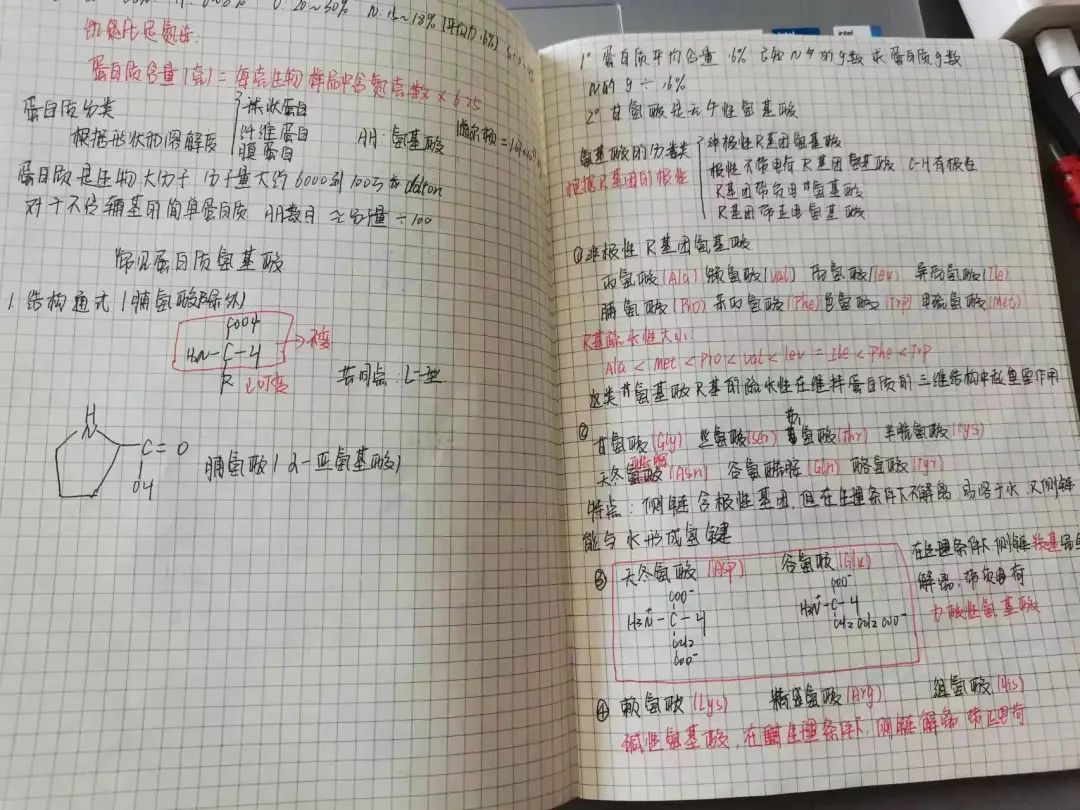 O: 20~30% N: 15~18% (平均为16%)
凯氏定氮法:
蛋白质含量(克)=每克生物样品中含氮克数×6.25
蛋白质分类
根据形状和溶解度
球状蛋白
纤维蛋白
膜蛋白
AA: 氨基酸
道尔顿=1.61×10
蛋白质是生物大分子 分子量大约6000到100万 dalton
对于不含辅基的简单蛋白质 AA数目≈分子量÷100
常见蛋白质氨基酸
1. 结构通式(脯氨酸除外)
COOH
H₂N-C-H →不变
R 可变
共同点: L-型
H
N
C=O
OH
脯氨酸(α-亚氨基酸)
intel
intel
1° 蛋白质平均含量16% 已知N的g数求蛋白质g数
N的g÷16%
2° 甘氨酸是无手性氨基酸
氨基酸的分类
根据R基团的极性
非极性R基团氨基酸
极性不带电荷R基团氨基酸 C-H有极性
R基团带负电氨基酸
R基团带正电氨基酸
①非极性R基团氨基酸
丙氨酸(Ala) 缬氨酸(val) 亮氨酸(leu) 异亮氨酸(Ile)
脯氨酸(Pro) 苯丙氨酸(Phe) 色氨酸(Trp) 甲硫氨酸(Met)
R基疏水性大小:
Ala<Met<Pro<val<leu=Ile<Phe<Trp
这类氨基酸R基的疏水性在维持蛋白质的三维结构中起重要作用
②
甘氨酸(Gly) 丝氨酸(Ser) 苏氨酸(Thr) 半胱氨酸(Cys)
天冬酰胺(Asn) 谷氨酰胺(Gln) 酪氨酸(Tyr)
特点: 侧链含极性基团,但在生理条件下不解离,易溶于水,R侧链
能与水形成氢键
③ 天冬氨酸(Asp) 谷氨酸(Glu)
COO⁻
H₃N⁺-C-H
CH₂
COO⁻
COO⁻
H₃N⁺-C-H
CH₂CH₂COO⁻
在生理条件下侧链羧基
解离,带负电荷
为酸性氨基酸
④ 赖氨酸(Lys) 精氨酸(Arg) 组氨酸(His)
碱性氨基酸,在生理条件下,侧链解离带正电荷